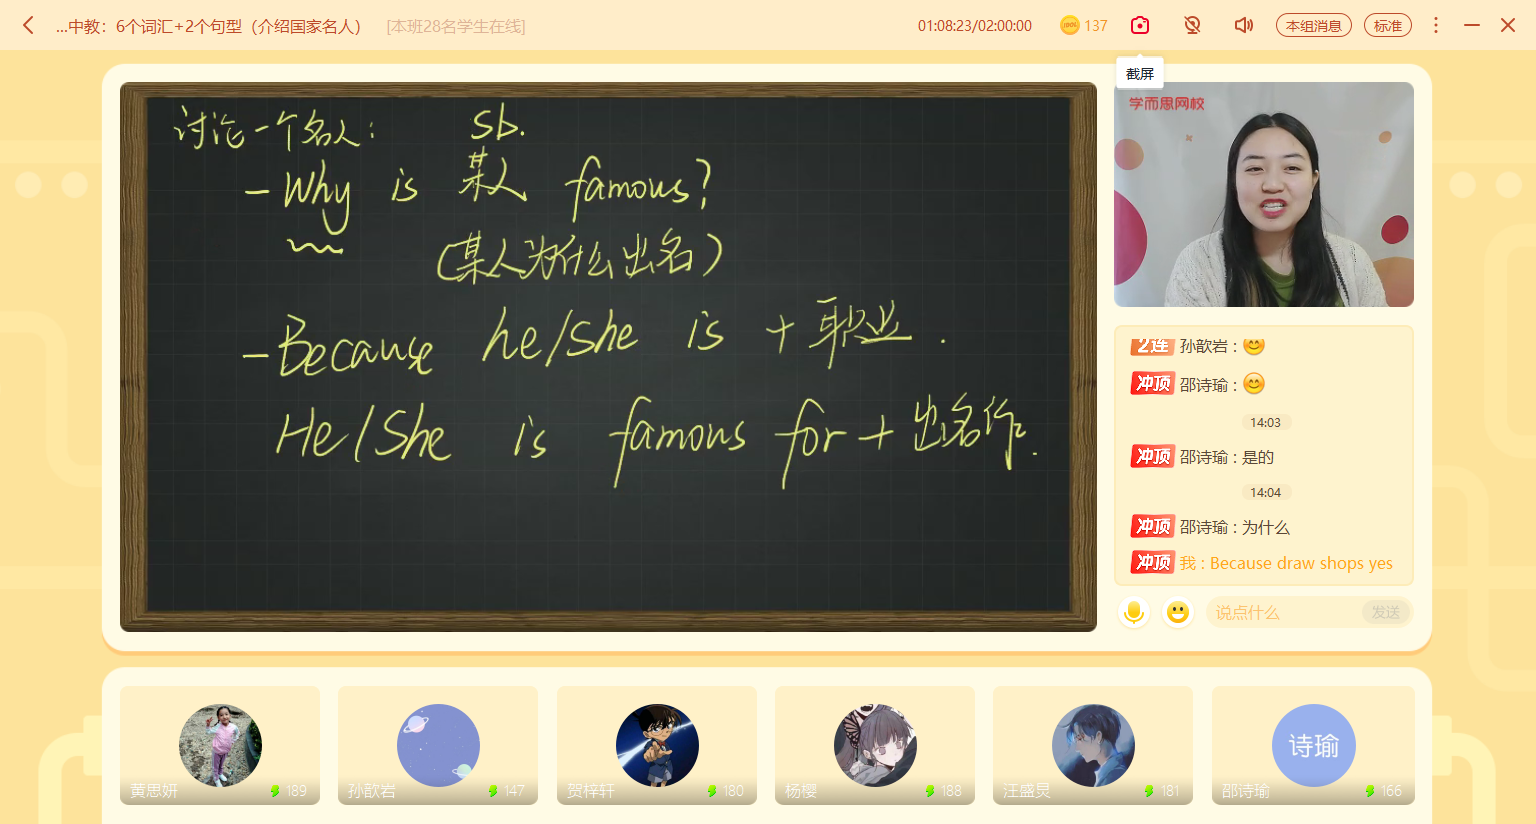 ...中教：6个词汇+2个句型（介绍国家名人）
[本班28名学生在线]
01:08:23/02:00:00
137
本组消息
标准
截屏
学而思网校
讨论一个名人：
sb.
-Why is 某人 famous?
(某人为什么出名)
-Because he/she is + 职业.
He/She is famous for + 出名作.
2连 孙歆岩 : 😊
冲顶 邵诗瑜 : 😊
14:03
冲顶 邵诗瑜 : 是的
14:04
冲顶 邵诗瑜 : 为什么
冲顶 我 : Because draw shops yes
说点什么
发送
诗瑜
黄思妍 189
孙歆岩 147
贺梓轩 180
杨樱 188
汪盛炅 181
邵诗瑜 166